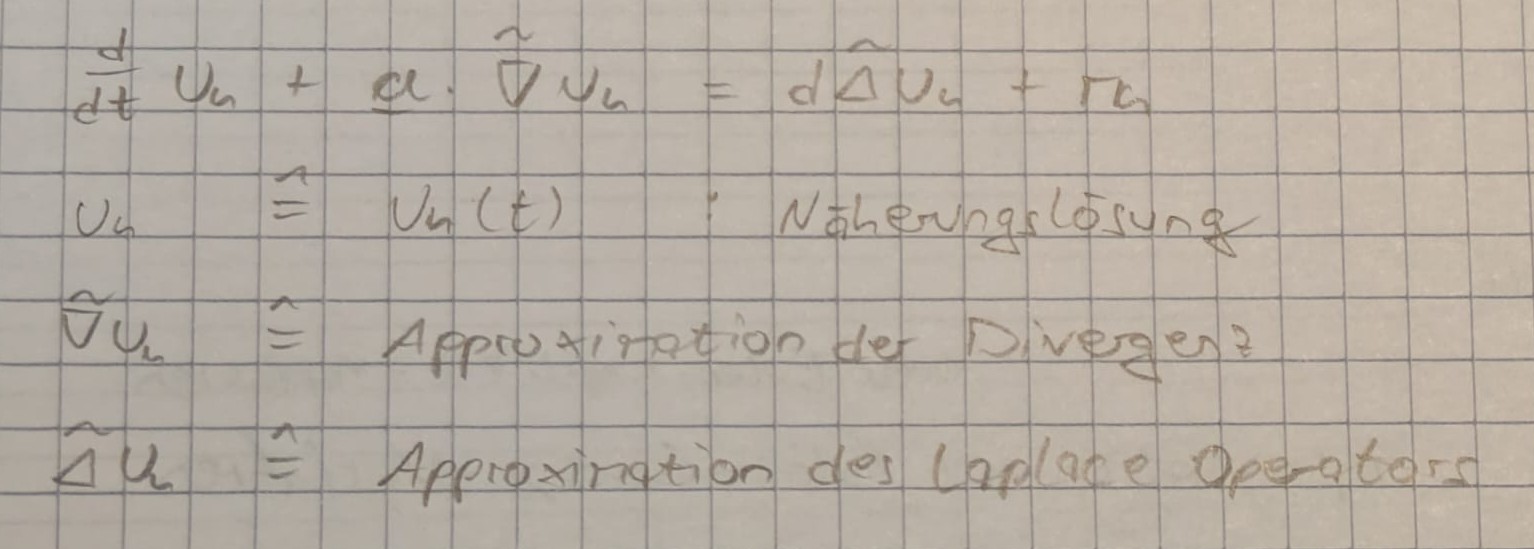 d/dt u_h + a · ∇̃ u_h = d Δ̃ u_h + r_h
u_h ≙ u_h (t) : Näherungslösung
∇̃ u_h ≙ Approximation der Divergenz
Δ̃ u_h ≙ Approximation des Laplace Operators